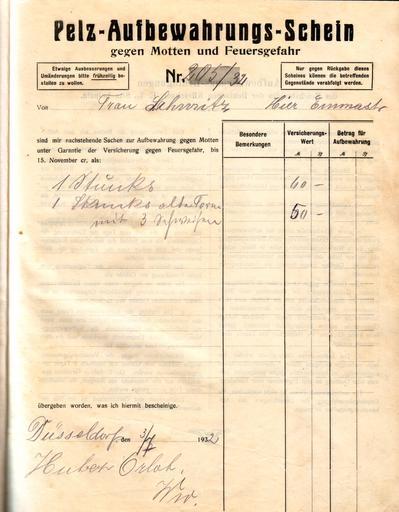 Pelz-Aufbewahrungs-Schein
gegen Motten und Feuersgefahr
Etwaige Ausbesserungen und
Umänderungen bitte frühzeitig be-
stellen zu wollen.
Nr. 205/32
Nur gegen Rückgabe dieses
Scheines können die betreffenden
Gegenstände verabfolgt werden.
Von Frau Schmitz, Hier Emmastr
sind mir nachstehende Sachen zur Aufbewahrung gegen Motten
unter Garantie der Versicherung gegen Feuersgefahr, bis
15. November cr. als:
Besondere
Bemerkungen
Versicherungs-
Wert
Betrag für
Aufbewahrung
1 Skunks 60 –
1 Skunks alte Form 50 –
mit 3 Schweifen
übergeben worden, was ich hiermit bescheinige.
Düsseldorf, den 3/7 1932
Hubert
Ww.